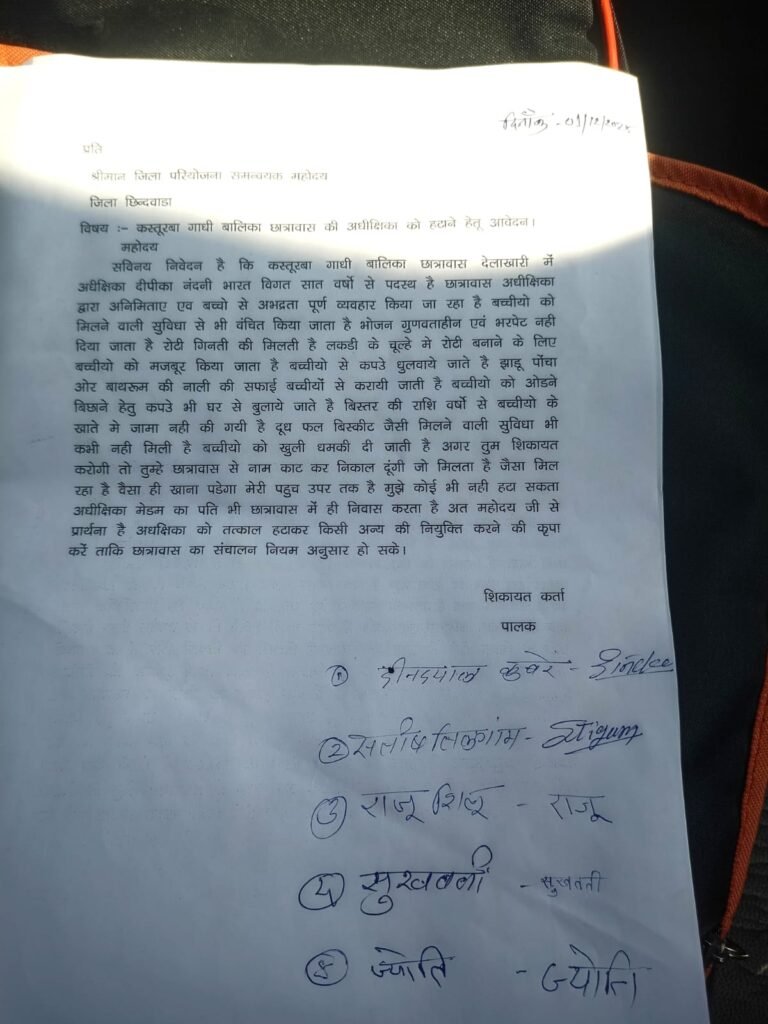 दिनाँक :- 01/12/
प्रति
श्रीमान जिला परियोजना समन्वयक महोदय
जिला छिन्दवाडा
विषय :- कस्तूरबा गाधी बालिका छात्रावास की अधीक्षिका को हटाने हेतू आवेदन।
महोदय
सविनय निवेदन है कि कस्तूरबा गाधी बालिका छात्रावास देलाखारी में
अधीक्षिका दीपीका नंदनी भारत विगत सात वर्षो से पदस्थ है छात्रावास अधीक्षिका
द्वारा अनिमिताए एव बच्चो से अभद्रता पूर्ण व्यवहार किया जा रहा है बच्चीयो को
मिलने वाली सुविधा से भी वंचित किया जाता है भोजन गुणवताहीन एवं भरपेट नही
दिया जाता है रोटी गिनती की मिलती है लकडी के चूल्हे मे रोटी बनाने के लिए
बच्चीयो को मजबूर किया जाता है बच्चीयो से कपडे धुलवाये जाते है झाडू पोंचा
ओर बाथरूम की नाली की सफाई बच्चीयों से करायी जाती है बच्चीयो को ओडने
बिछाने हेतु कपडे भी घर से बुलाये जाते है बिस्तर की राशि वर्षो से बच्चीयो के
खाते मे जामा नही की गयी है दूध फल बिस्कीट जैसी मिलने वाली सुविधा भी
कभी नही मिली है बच्चीयो को खुली धमकी दी जाती है अगर तुम शिकायत
करोगी तो तुम्हे छात्रावास से नाम काट कर निकाल दूंगी जो मिलता है जैसा मिल
रहा है वैसा ही खाना पडेगा मेरी पहुच उपर तक है मुझे कोई भी नही हटा सकता
अधीक्षिका मेडम का पति भी छात्रावास में ही निवास करता है अत महोदय जी से
प्रार्थना है अधक्षिका को तत्काल हटाकर किसी अन्य की नियुक्ति करने की कृपा
करें ताकि छात्रावास का संचालन नियम अनुसार हो सके।
शिकायत कर्ता
पालक
① दीनदयाल
② सतीष
③ राजू - राजू
④ सुखवती - सुखवती
⑤ ज्योति - ज्योति